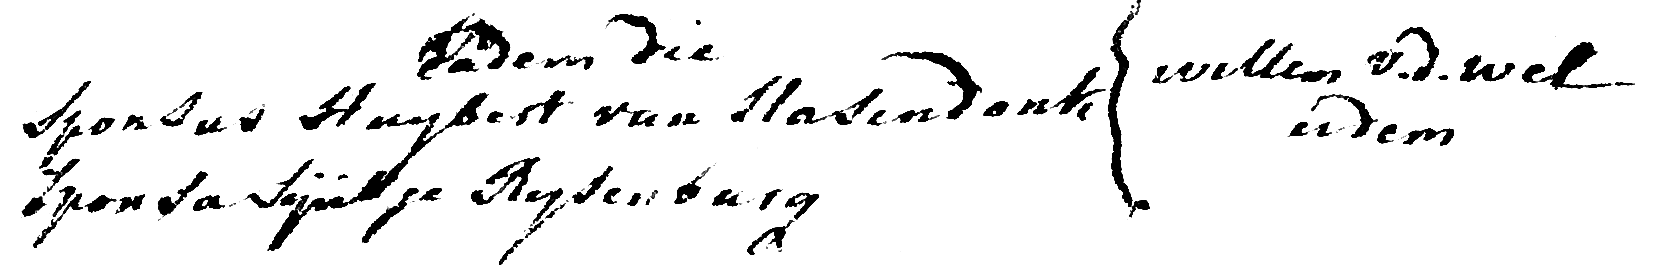 Eadem die
Sponsus Huybert van Hasendonk
Sponsa Sijntge Rysenburg
willem v.d. wel
iidem